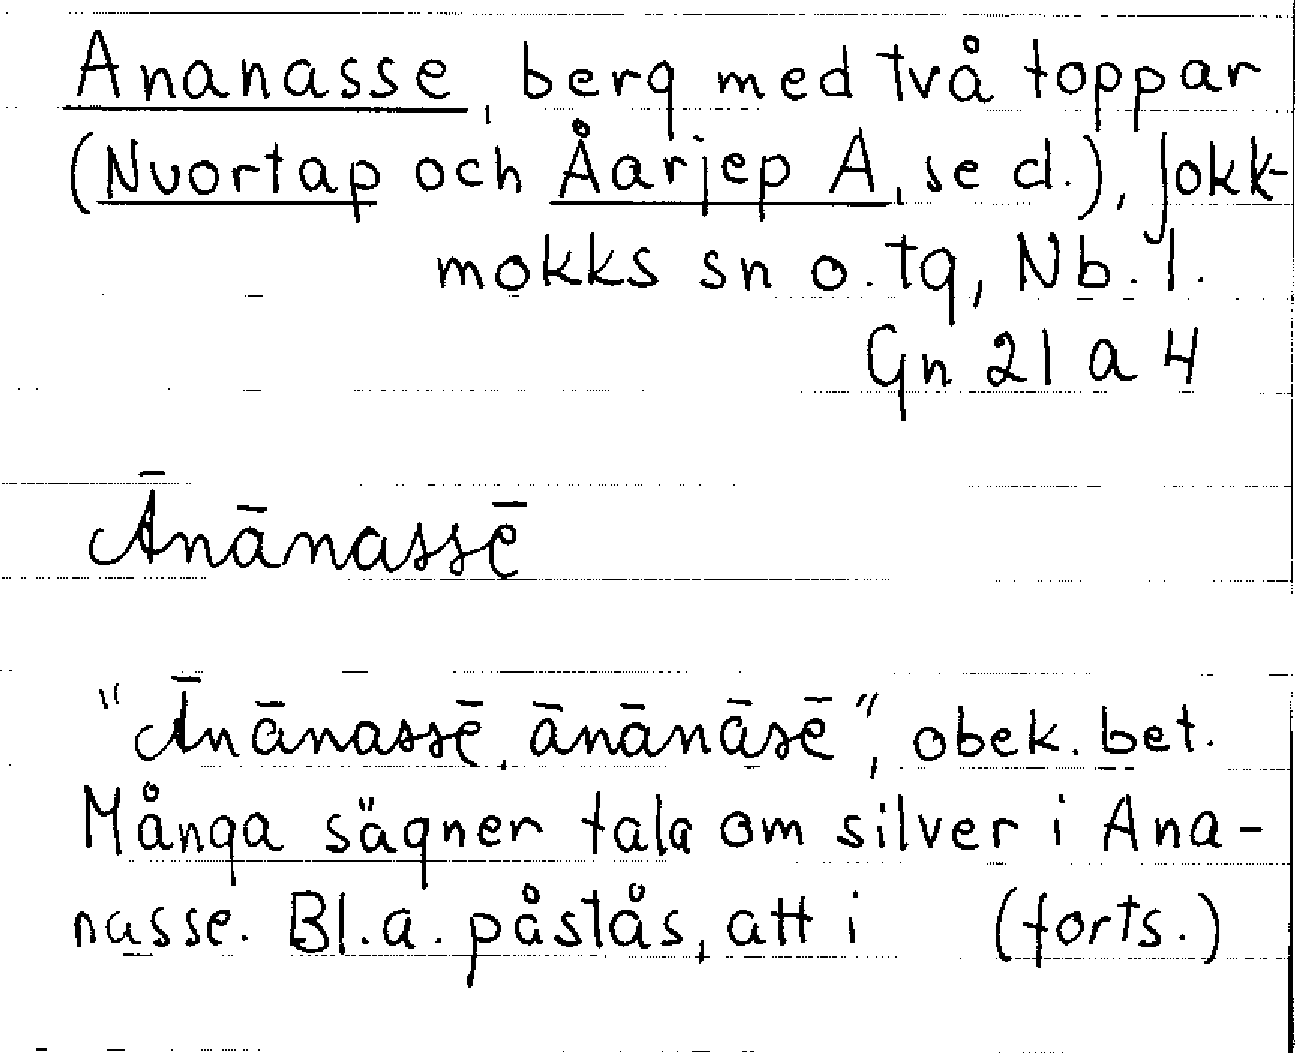 Ananasse, berg med två toppar
(Nuortap och Åarjep A, se d.), Jokk-
mokks sn o. tg, Nb. l.
Gn 21 a 4
Ānānassē
"Ānānassē, ānānāsē", obek. bet.
Många sägner tala om silver i Ana-
nasse. Bl.a. påstås, att i (forts.)